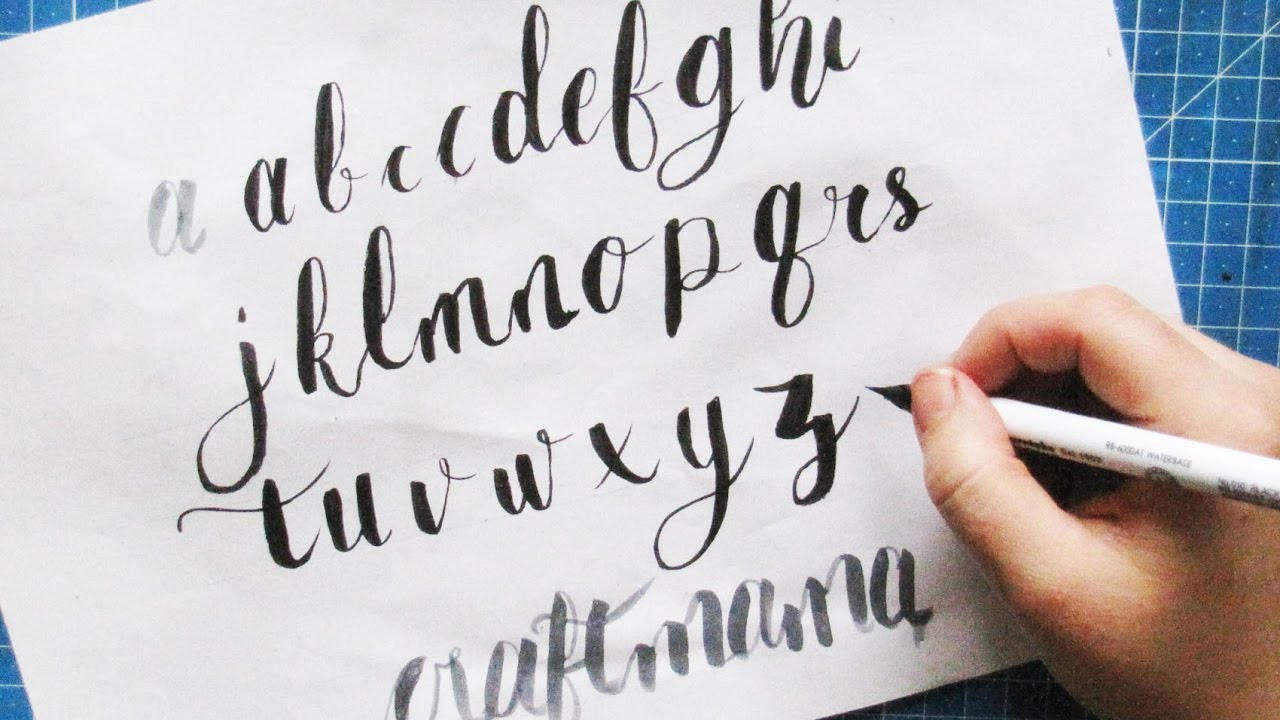 a abccdefghi
jklmnopqrs
tuvwxyz
craftmama
RB-6000AT WATERBASE